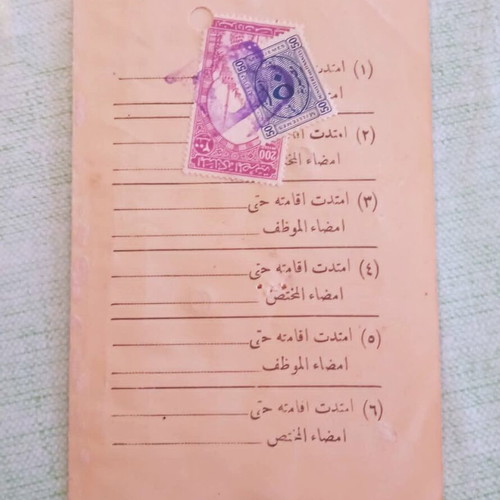 (١) امتدت
امضاء
(٢) امتدت
امضاء المختص
(٣) امتدت اقامته حتى
امضاء الموظف
(٤) امتدت اقامته حتى
امضاء المختص
(٥) امتدت اقامته حتى
امضاء الموظف
(٦) امتدت اقامته حتى
امضاء المختص
200
٢٠٠
50
50
50
50
٥٠
MILLIEMES